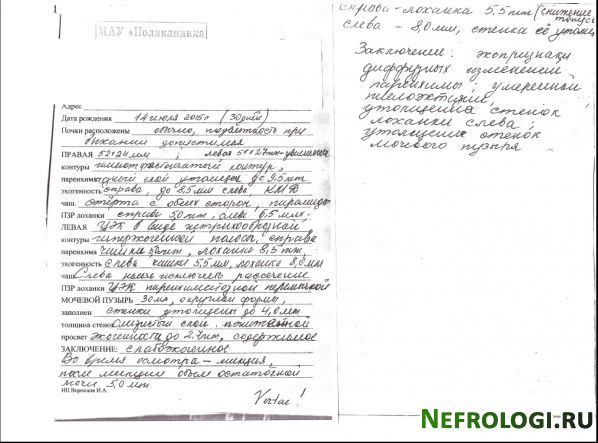 1
МАУ «Поликлиника
Адрес
Дата рождения 14 июля 2015г (30 дней)
Почки расположены обычно, подвижность при
дыхании допустимая
ПРАВАЯ 52х24мм ; левая 51х27мм-увеличена
контуры контур,
паренхима слой утолщен до 9,5мм
эхогенность справа, до 8,5мм слева, КМД
чаш. стёрта с обеих сторон, пирамиды
ПЗР лоханки справа 5,0мм, слева 6,5мм.
ЛЕВАЯ ЦЭК в виде
контуры гиперэхогенной полосы, справа
паренхима чашка мм, лоханка 8,5мм
эхогенность слева чашки 5,5мм, лоханка 8,0мм
чаш Слева нельзя исключить рассечение
ПЗР лоханки ЦЭК паренхиматозной перемычкой
МОЧЕВОЙ ПУЗЫРЬ 30мл, округлой формы,
заполнен стенки утолщены до 4,0мм
толщина стенок слизистый слой
просвет эхогенности до 2,7мм, содержимое
ЗАКЛЮЧЕНИЕ: слабоэхогенное
Во время осмотра - микция,
после микции объем остаточной
мочи 5,0 мл
ИП Воронцов И.А.
Vertae!
справа - лоханка 5,5мм (снижение
слева - 8,0мм, стенка её утолщ
Заключение: эхопризнаки
диффузных изменений
паренхимы; умеренной
пиелоэктазии,
утолщения стенок
лоханки слева;
утолщение стенок
мочевого пузыря.
NEFROLOGI.RU